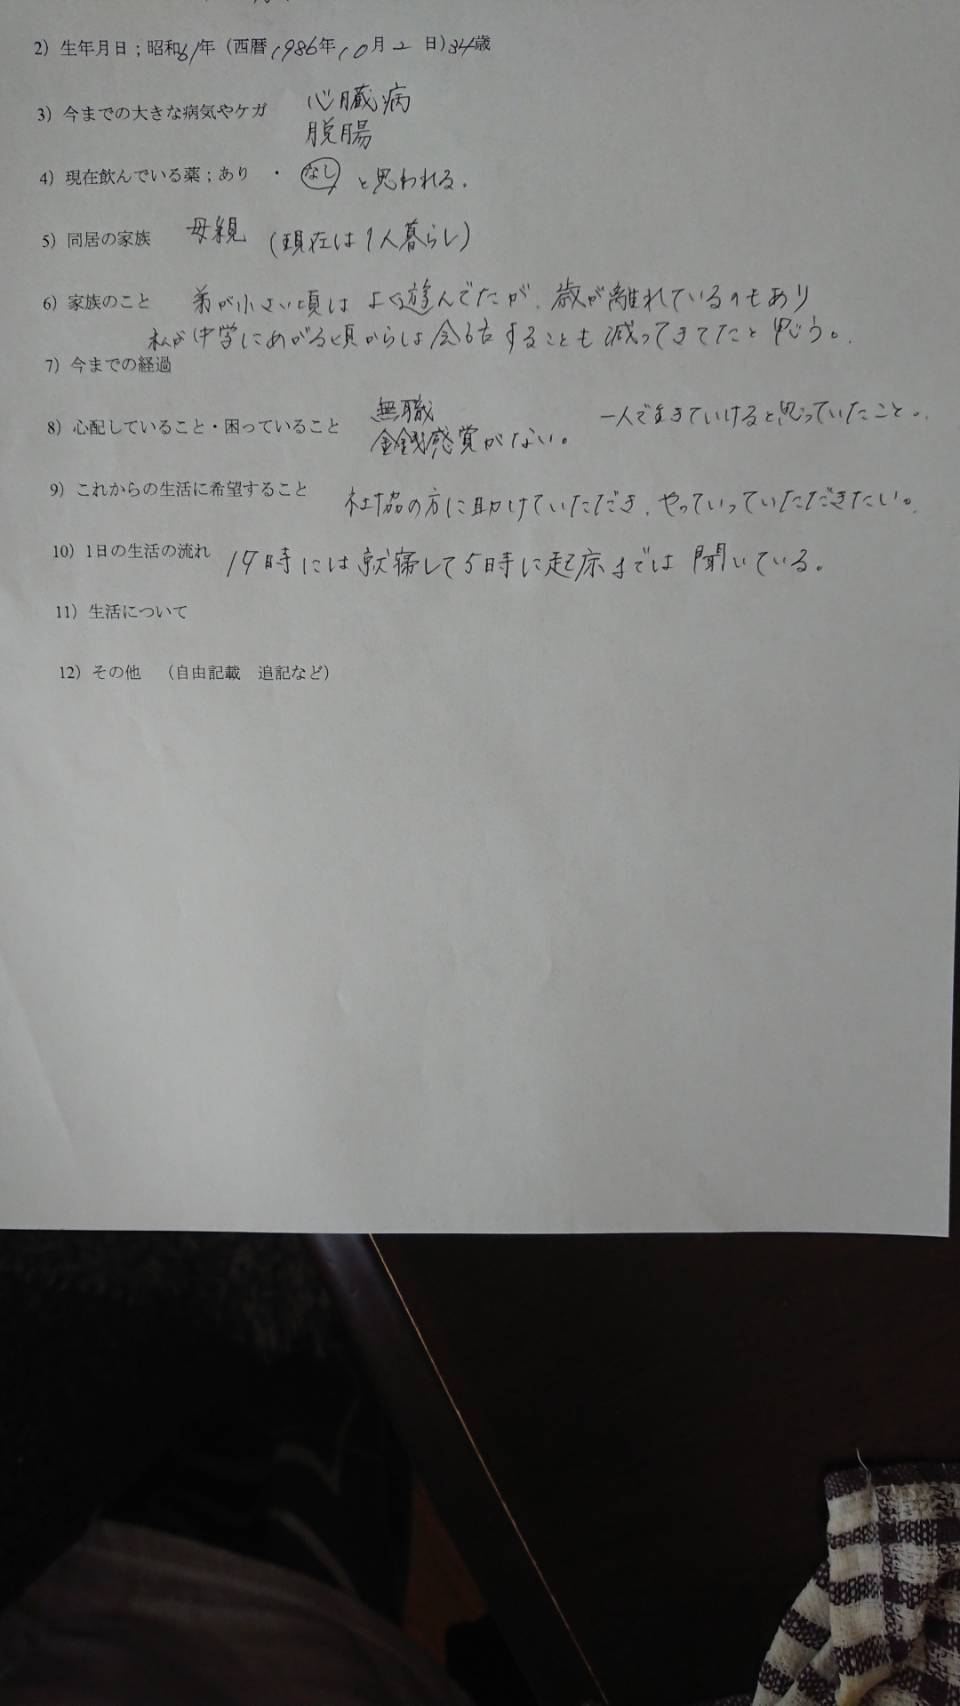 2）生年月日；昭和61年（西暦1986年10月2日）34歳
3）今までの大きな病気やケガ 心臓病
脱腸
4）現在飲んでいる薬；あり ・ なし と思われる.
5）同居の家族 母親 （現在は1人暮らし）
6）家族のこと 弟が小さい頃は よく遊んでたが、歳が離れているのもあり
私が中学にあがる頃からは会話することも減ってきてたと思う。
7）今までの経過
8）心配していること・困っていること 無職 一人で生きていけると思っていたこと。
金銭感覚がない。
9）これからの生活に希望すること 社協の方に助けていただき、やっていっていただきたい。
10）1日の生活の流れ 19時には就寝して5時に起床までは聞いている。
11）生活について
12）その他 （自由記載 追記など）